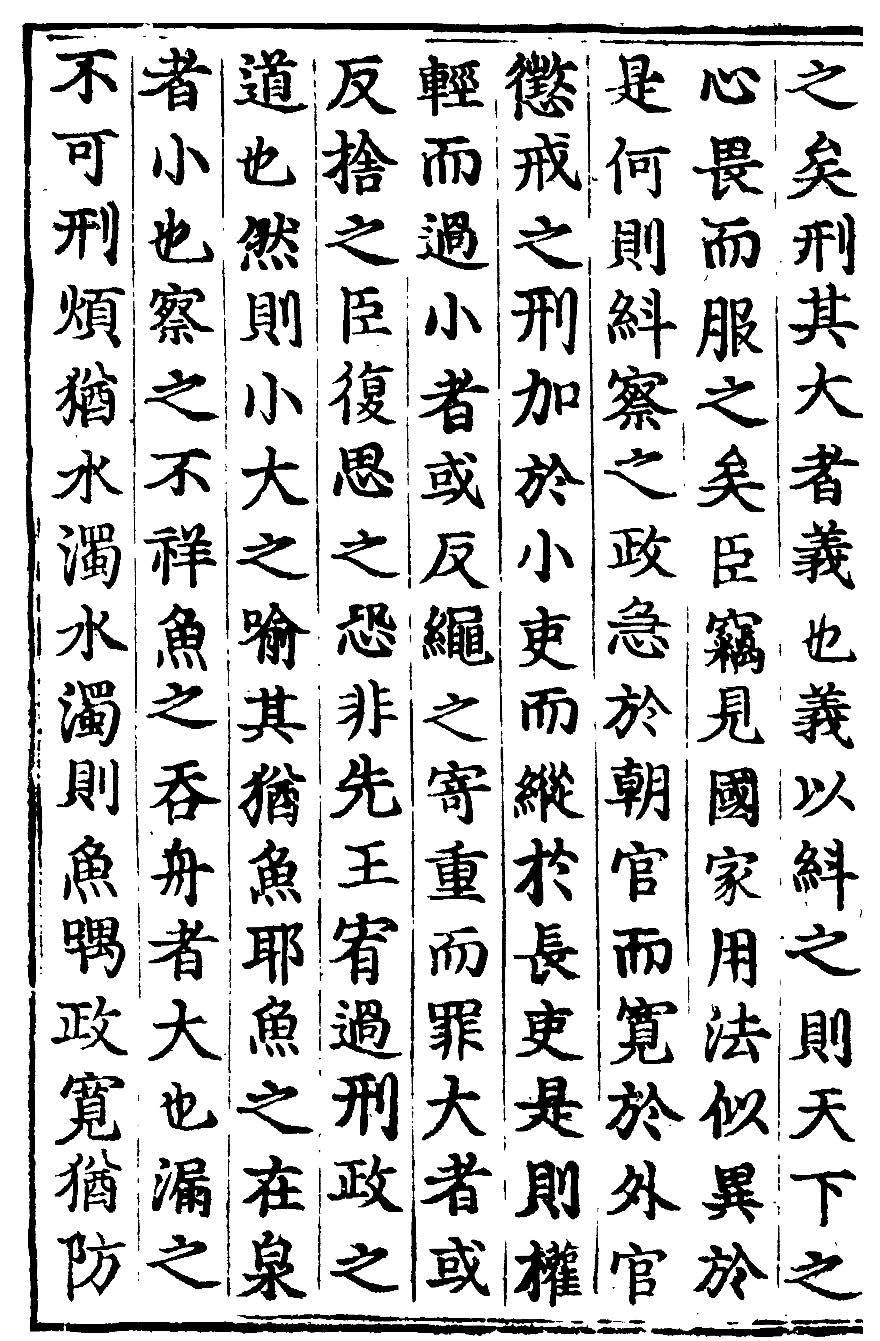 之矣刑其大者義也義以糾之則天下之
心畏而服之矣臣竊見國家用法似異於
是何則糾察之政急於朝官而寬於外官
懲戒之刑加於小吏而縱於長吏是則權
輕而過小者或反繩之寄重而罪大者或
反捨之臣復思之恐非先王宥過刑政之
道也然則小大之喻其猶魚耶魚之在泉
者小也察之不祥魚之吞舟者大也漏之
不可刑煩猶水濁水濁則魚喁政寬猶防